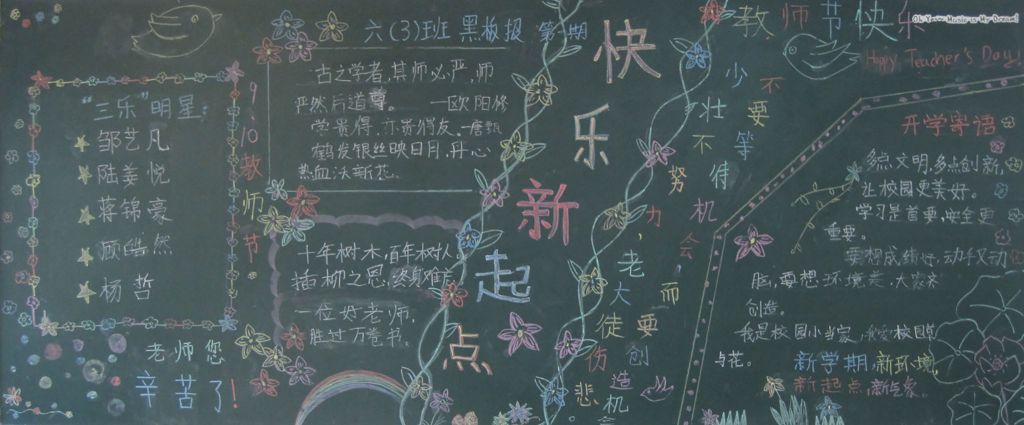 六(3)班 黑板报 第 期
"三乐"明星:
邹艺凡
陆姜悦
蒋锦豪
顾皓然
杨哲
9.10教师节
老师您
辛苦了!
古之学者,其师必严,师
严然后道尊。 一欧阳修
学贵得师,亦贵得友。一唐甄
鹤发银丝映日月,丹心
热血沃新花。
十年树木,百年树人
插柳之恩,终身难忘
一位好老师,
胜过万卷书。
快乐新起点
少壮不努力,老大徒伤悲
不要等待机会,而要创造机会
教师节快乐
Happy Teacher's Day!
开学寄语
多点文明,多点创新,
让校园更美好。
学习是首要,安全更
重要。
要想成绩好,动手又动
脑,要想环境美,大家齐
创造。
我是校园小当家,
与花。
新学期,新环境,
新起点,